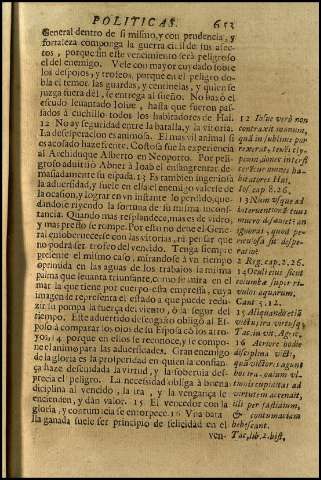 POLITICAS. 653
General dentro de si mismo, y con prudencia, y
fortaleza componga la guerra civil de sus afec-
tos, porque sin este vencimiento serà peligroso
el del enemigo. Vele con mayor cuydado sobre
los despojos, y trofeos, porque en el peligro do-
bla el temor las guardas, y centinelas, y quien se
juzga fuera dèl, se entrega al sueño. No baxò el
escudo levantado Iosue, hasta que fueron pas-
sados à cuchillo todos los habitadores de Hai.
12 No ay seguridad entre la batalla, y la vitoria.
La desesperacion es animosa. El mas vil animal si
es acosado haze frente. Costosa fue la experiencia
al Archiduque Alberto en Neoporto. Por peli-
groso advirtio Abner à Ioab el ensangrentar de-
masiadamente su espada. 13 Es tambien ingeniosa
la adversidad, y suele en ella el enemigo valerse de
la ocasion, y lograr en un instante lo perdido, que-
dandose riyendo la fortuna de su misma incons-
tancia. Quando mas resplandece, mas es de vidro,
y mas presto se rompe. Por esto no deve el Gene-
ral ensobervecerse con las vitorias, ni pensar que
no podrà ser trofeo del vencido. Tenga siempre
presente el mismo caso, mirandose à un tiempo
oprimida en las aguas de los trabajos la misma
palma que levanta triunfante, como se mira en el
mar la que tiene por cuerpo esta empresa, cuya
imagen le representa el estado à que puede redu-
zir su pompa la fuerça del viento, ò la segur del
tiempo. Este advertido desengaño obligò al Es-
poso à comparar los ojos de su Esposa con los arro-
yos, 14 porque en ellos se reconoce, y se compo-
ne el animo para las adversidades. Gran enemigo
de la gloria es la prosperidad en quien la confian-
ça haze descuidada la virtud, y la sobervia des-
precia el peligro. La necessidad obliga à buena
disciplina al vencido, la ira, y la vengança le
encienden, y dàn valor. 15 El vencedor con la
gloria, y contumacia se entorpece. 16 Una bata-
lla ganada suele ser principio de felicidad en el
ven-
12 Iosue verò non
contraxit manum,
quã in sublime por-
rexerat, tenẽs cly-
peum, donec interfi-
cerẽtur omnes ha-
bitatores Hai,
Ios. cap. 8. 26.
13 Num usque ad
internecionẽ tuus
mucro desæviet? an
ignoras, quod pe-
riculosa sit despe-
ratio?
2 Reg. cap. 2. 26.
14 Oculi eius sicut
columbæ super ri-
vulos aquarum,
Cant. 5. 12.
15 Aliquando etiã
victis ira virtusq;
Tac. in vit. Agric.
16 Acriore hodie
disciplina victi,
quã victores agunt
hos ira, odium ul-
tionis cupiditas ad
virtutem accendit,
illi per fastidium,
& contumaciam
hebescunt.
Tac, lib. 2. hist,